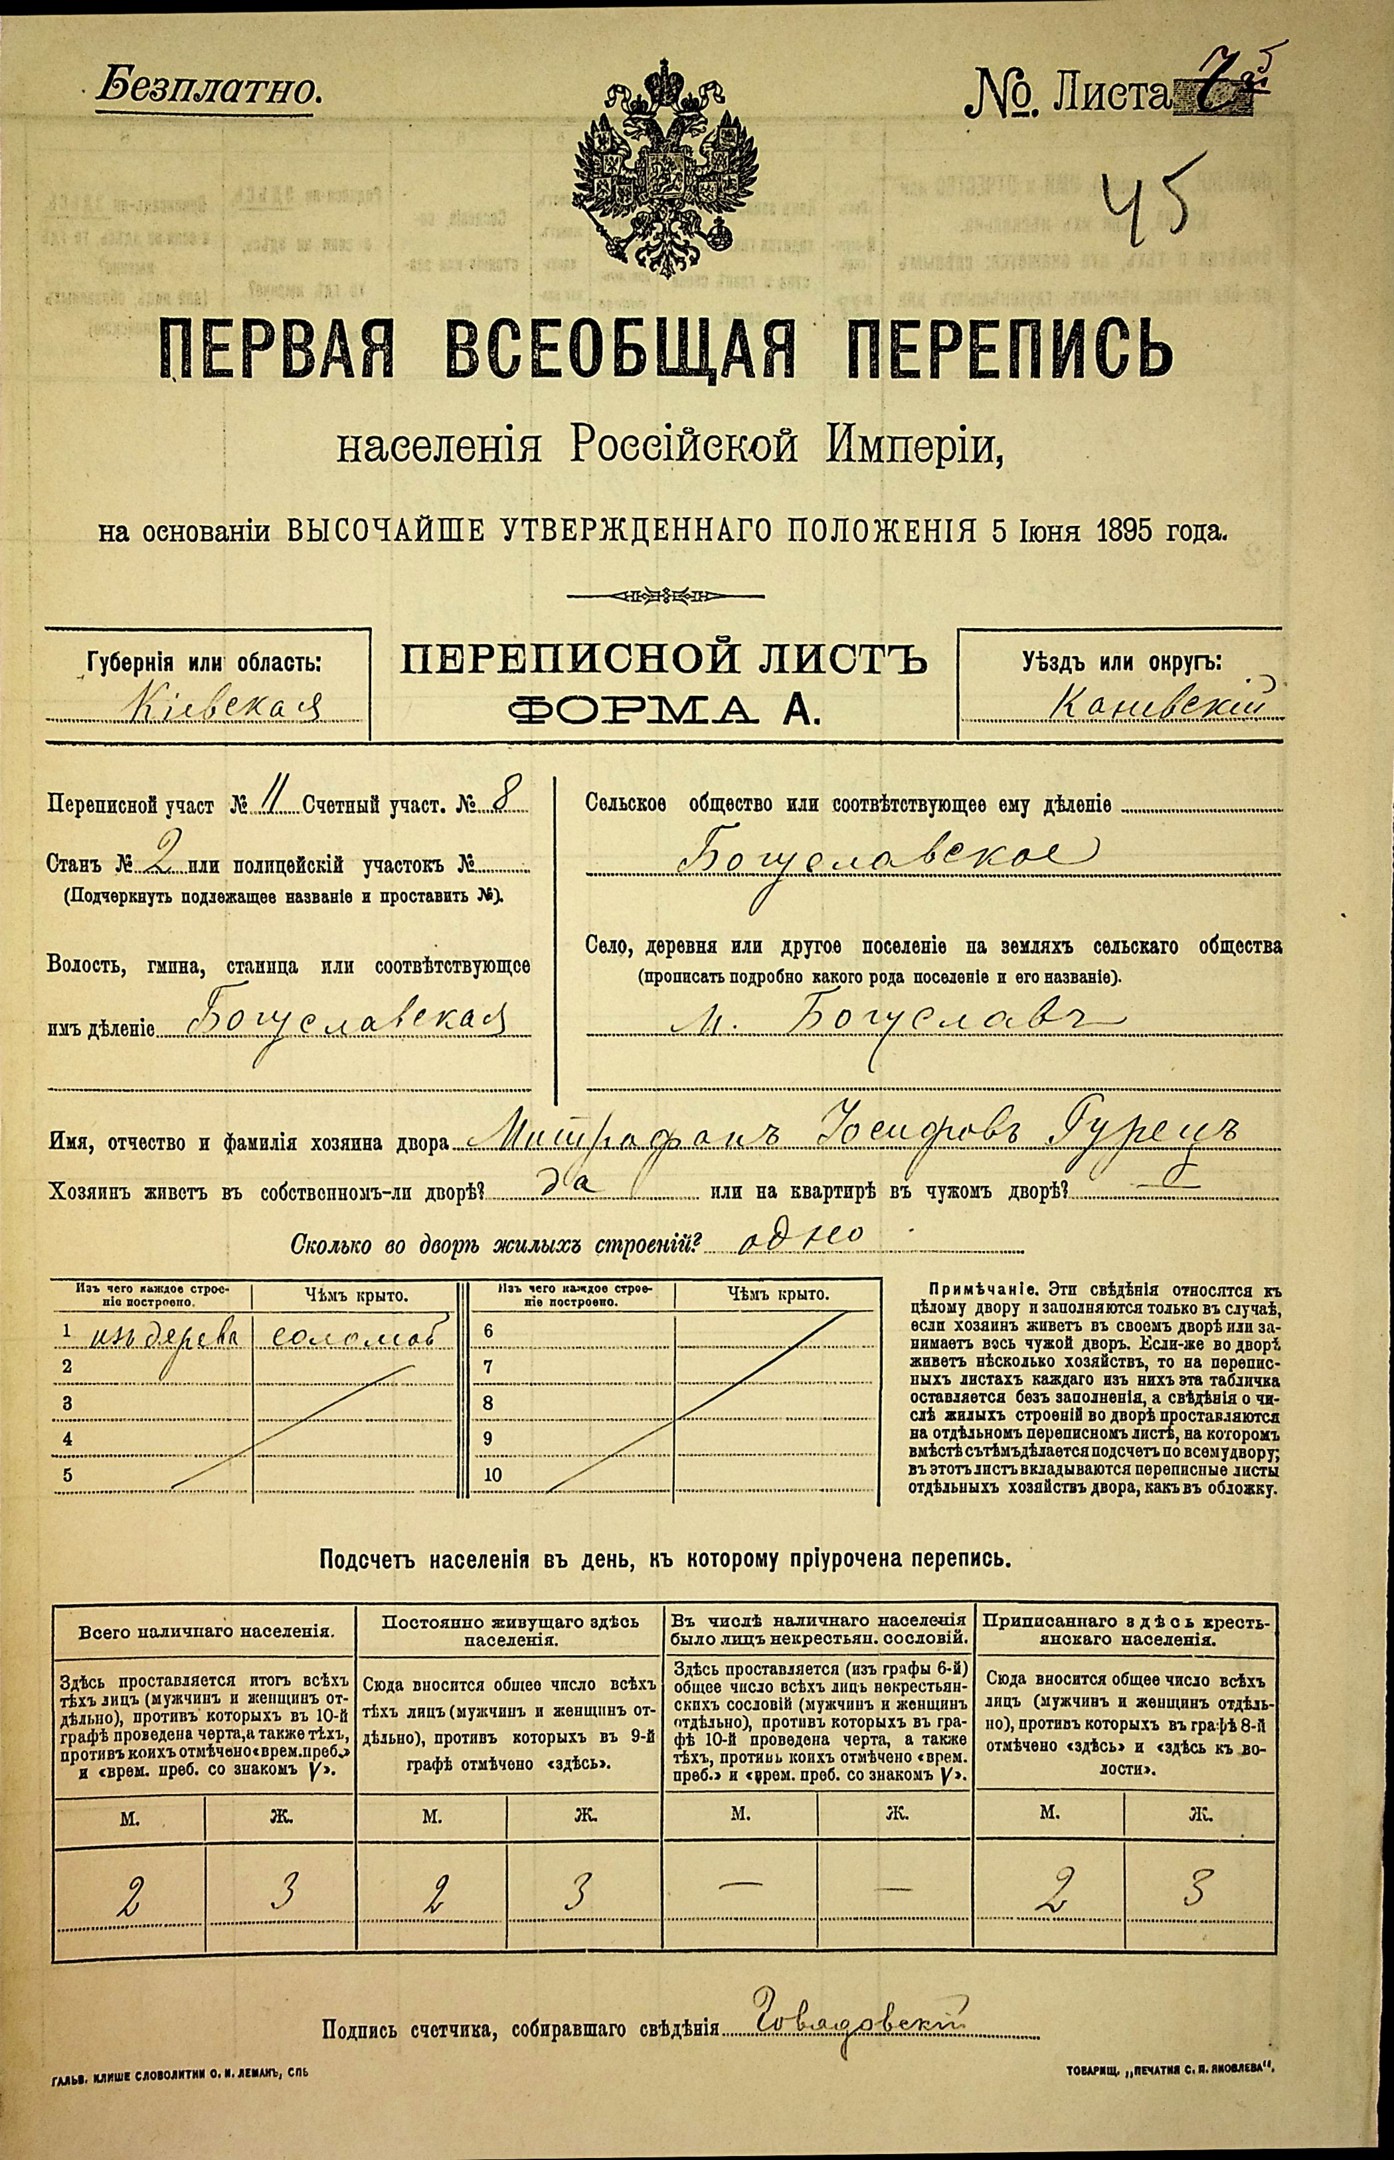 Безплатно.
№. Листа 7
45
ПЕРВАЯ ВСЕОБЩАЯ ПЕРЕПИСЬ
населенія Россійской Имперіи,
на основаніи ВЫСОЧАЙШЕ УТВЕРЖДЕННАГО ПОЛОЖЕНІЯ 5 Іюня 1895 года.
Губернія или область:
Кіевская
ПЕРЕПИСНОЙ ЛИСТЪ
ФОРМА А.
Уѣздъ или округъ:
Каневскій
Переписной участ № 11 Счетный участ. № 8
Станъ № 2 или полицейскій участокъ №
(Подчеркнуть подлежащее названіе и проставить №).
Волость, гмина, станица или соотвѣтствующее
имъ дѣленіе Богуславская
Сельское общество или соотвѣтствующее ему дѣленіе
Богуславское
Село, деревня или другое поселеніе на земляхъ сельскаго общества
(прописать подробно какого рода поселеніе и его названіе).
М. Богуславъ
Имя, отчество и фамилія хозяина двора Митрофанъ Іосифовъ Гурецъ
Хозяинъ живетъ въ собственномъ-ли дворѣ? да или на квартирѣ въ чужомъ дворѣ? —
Сколько во дворѣ жилыхъ строеній? одно
Изъ чего каждое строе-
ніе построено.
Чѣмъ крыто.
1 изъ дерева соломой
2
3
4
5
Изъ чего каждое строе-
ніе построено.
Чѣмъ крыто.
6
7
8
9
10
Примѣчаніе. Эти свѣдѣнія относятся къ
цѣлому двору и заполняются только въ случаѣ,
если хозяинъ живетъ въ своемъ дворѣ или за-
нимаетъ весь чужой дворъ. Если-же во дворѣ
живетъ нѣсколько хозяйствъ, то на перепис-
ныхъ листахъ каждаго изъ нихъ эта табличка
оставляется безъ заполненія, а свѣдѣнія о чи-
слѣ жилыхъ строеній во дворѣ проставляются
на отдѣльномъ переписномъ листѣ, на которомъ
вмѣстѣ съ тѣмъ дѣлается подсчетъ по всему двору;
въ этотъ листъ вкладываются переписные листы
отдѣльныхъ хозяйствъ двора, какъ въ обложку.
Подсчетъ населенія въ день, къ которому пріурочена перепись.
Всего наличнаго населенія.
Здѣсь проставляется итогъ всѣхъ
тѣхъ лицъ (мужчинъ и женщинъ от-
дѣльно), противъ которыхъ въ 10-й
графѣ проведена черта, а также тѣхъ,
противъ коихъ отмѣчено «врем. преб.»
и «врем. преб. со знакомъ V».
М. Ж.
2 3
Постоянно живущаго здѣсь
населенія.
Сюда вносится общее число всѣхъ
тѣхъ лицъ (мужчинъ и женщинъ от-
дѣльно), противъ которыхъ въ 9-й
графѣ отмѣчено «здѣсь».
М. Ж.
2 3
Въ числѣ наличнаго населенія
было лицъ некрестьян. сословій.
Здѣсь проставляется (изъ графы 6-й)
общее число всѣхъ лицъ некрестьян-
скихъ сословій (мужчинъ и женщинъ
отдѣльно), противъ которыхъ въ гра-
фѣ 10-й проведена черта, а также
тѣхъ, противъ коихъ отмѣчено «врем.
преб.» и «врем. преб. со знакомъ V».
М. Ж.
— —
Приписаннаго здѣсь кресть-
янскаго населенія.
Сюда вносится общее число всѣхъ
лицъ (мужчинъ и женщинъ отдѣль-
но), противъ которыхъ въ графѣ 8-й
отмѣчено «здѣсь» и «здѣсь къ во-
лости».
М. Ж.
2 3
Подпись счетчика, собиравшаго свѣдѣнія
ГАЛЬВ. КЛИШЕ СЛОВОЛИТНИ О. И. ЛЕМАНЪ, СПБ
ТОВАРИЩ. „ПЕЧАТНЯ С. П. ЯКОВЛЕВА“.